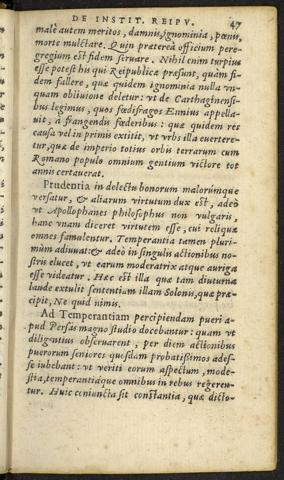 DE INSTIT. REIPV. 47
malè autem meritos, damnis, ignominia, pœnis,
morte mulctare. Quin præterea officium pere-
gregium est fidem seruare. Nihil enim turpius
esse potest his qui Reipublicæ præsunt, quàm fi-
dem fallere, quæ quidem ignominia nulla vn-
quam obliuione deletur: vt de Carthaginensi-
bus legimus, quos fœdifragos Ennius appella-
uit, a frangendu fœderibus: quæ quidem res
causa vel in primis extitit, vt vrbs illa euertere-
tur, quæ de imperio totius orbis terrarum cum
Romano populo omnium gentium victore tot
annis certauerat.
Prudentia in delectu bonorum malorúmque
versatur, & aliarum virtutum dux est, adeò
vt Apollophanes philosophus non vulgaris,
hanc vnam diceret virtutem esse, cui reliquæ
omnes famulentur. Temperantia tamen pluri-
mùm adiuuat: & adeò in singulis actionibus no-
stris elucet, vt earum moderatrix atque auriga
esse videatur. Hæc est illa quæ tam diuturna
laude extulit sententiam illam Solonis, quæ præ-
cipit, Ne quid nimis.
Ad Temperantiam percipiendam pueri a-
pud Persas magno studio docebantur: quam vt
diligentius obseruarent, per diem actionibus
puerorum seniores quosdam probatissimos ades-
se iubebant: vt veriti eorum aspectum, mode-
stia, temperantiáque omnibus in rebus regeren-
tur. Huic coniuncta sit constantia, quæ dicto-